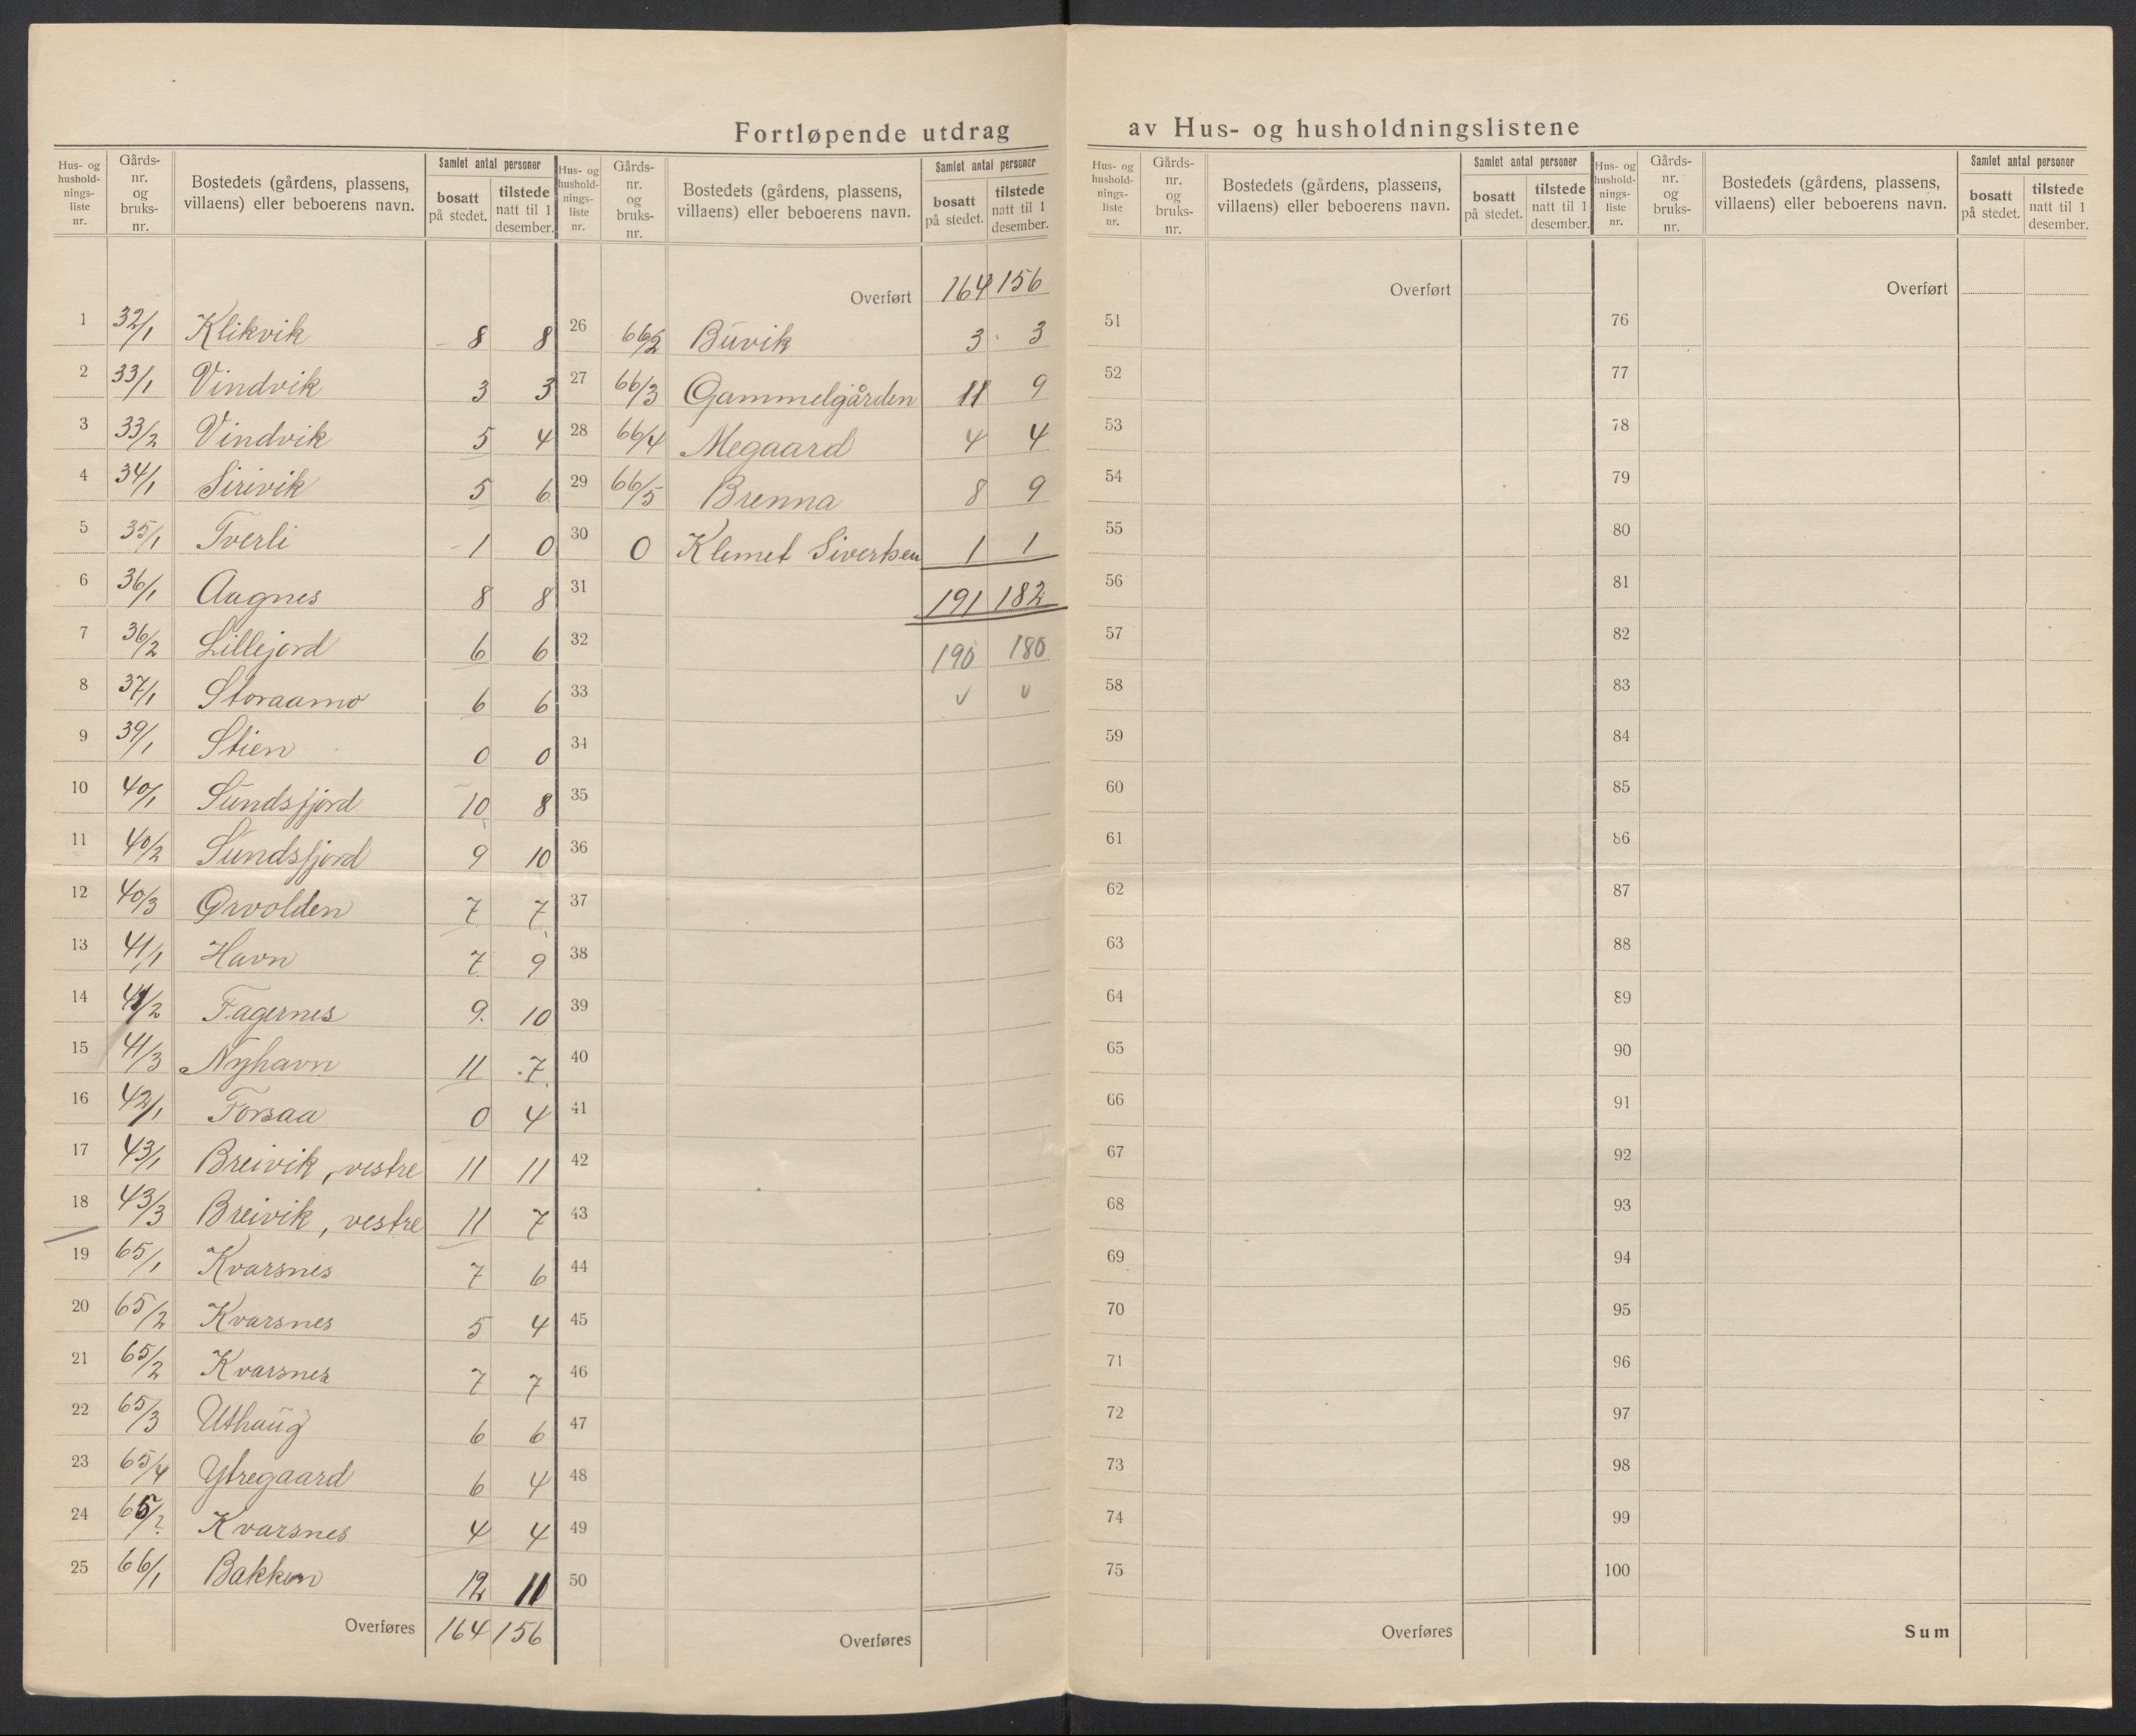 Fortløpende utdrag av Hus- og husholdningslistene
Hus- og hushold-nings-liste nr. | Gårds-nr. og bruks-nr. | Bostedets (gårdens, plassens, villaens) eller beboerens navn. | Samlet antal personer | bosatt på stedet. | tilstede natt til 1 desember.
1 32/1 Klikvik 8 8
2 33/1 Vindvik 3 3
3 33/2 Vindvik 5 4
4 34/1 Sirivik 5 6
5 35/1 Tverli 1 0
6 36/1 Aagnes 8 8
7 36/2 Lillejord 6 6
8 37/1 Storaamo 6 6
9 39/1 Stien 0 0
10 40/1 Sundsfjord 10 8
11 40/2 Sundsfjord 9 10
12 40/3 Ørvolden 7 7
13 41/1 Havn 7 9
14 41/2 Fagernes 9 10
15 41/3 Nyhavn 11 7
16 42/1 Forsaa 0 4
17 43/1 Breivik, vestre 11 11
18 43/3 Breivik, vestre 11 7
19 65/1 Kvarsnes 7 6
20 65/2 Kvarsnes 5 4
21 65/2 Kvarsnes 7 7
22 65/3 Uthaug 6 6
23 65/4 Ytregaard 6 4
24 65/2 Kvarsnes 4 4
25 66/1 Bakken 12 11
Overføres 164 156
Hus- og hushold-nings-liste nr. | Gårds-nr. og bruks-nr. | Bostedets (gårdens, plassens, villaens) eller beboerens navn. | Samlet antal personer | bosatt på stedet. | tilstede natt til 1 desember.
Overført 164 156
26 66/2 Buvik 3 3
27 66/3 Gammelgården 11 9
28 66/4 Megaard 4 4
29 66/5 Brenna 8 9
30 0 Klemet Sivertsen 1 1
31 191 182
32 190 180
33
34
35
36
37
38
39
40
41
42
43
44
45
46
47
48
49
50
Overføres
Hus- og hushold-nings-liste nr. | Gårds-nr. og bruks-nr. | Bostedets (gårdens, plassens, villaens) eller beboerens navn. | Samlet antal personer | bosatt på stedet. | tilstede natt til 1 desember.
Overført
51
52
53
54
55
56
57
58
59
60
61
62
63
64
65
66
67
68
69
70
71
72
73
74
75
Overføres
Hus- og hushold-nings-liste nr. | Gårds-nr. og bruks-nr. | Bostedets (gårdens, plassens, villaens) eller beboerens navn. | Samlet antal personer | bosatt på stedet. | tilstede natt til 1 desember.
Overført
76
77
78
79
80
81
82
83
84
85
86
87
88
89
90
91
92
93
94
95
96
97
98
99
100
Sum